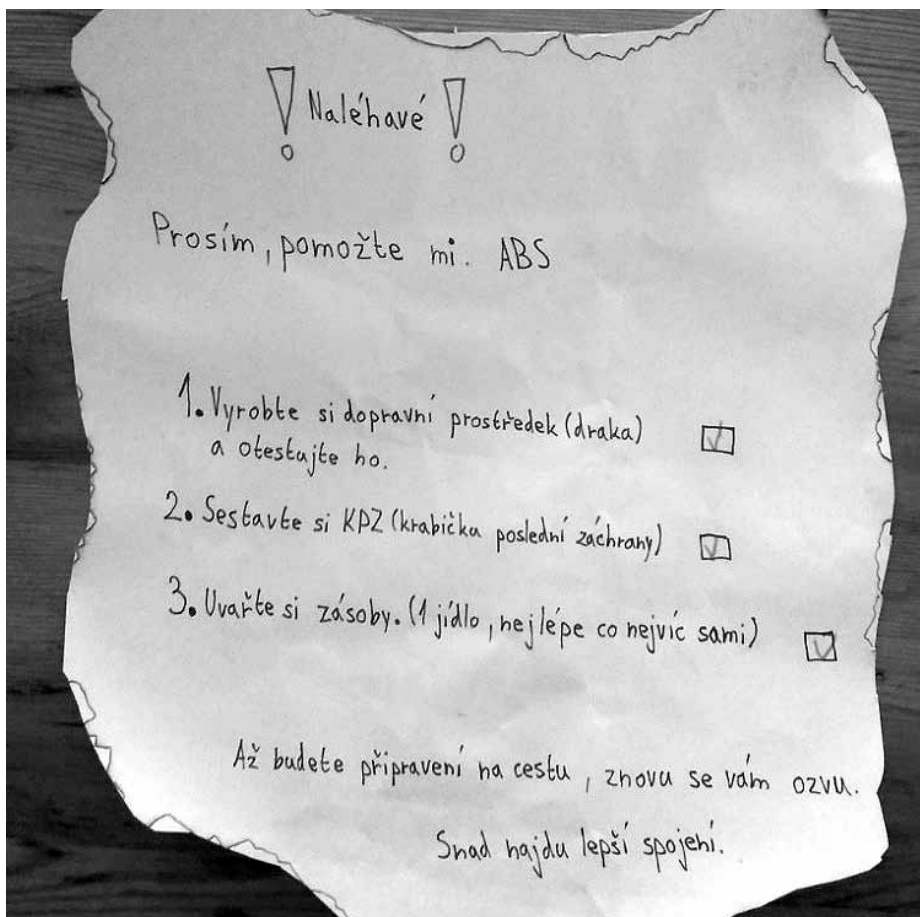 ! Naléhavé !
Prosím, pomožte mi. ABS
1. Vyrobte si dopravní prostředek (draka)
a otestujte ho.
2. Sestavte si KPZ (krabička poslední záchrany)
3. Uvařte si zásoby. (1 jídlo, nejlépe co nejvíc sami)
Až budete připravení na cestu, znovu se vám ozvu.
Snad najdu lepší spojení.